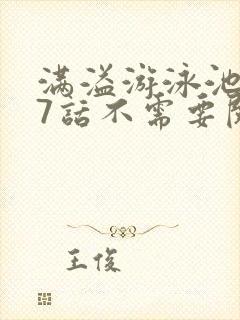 满溢游泳池
7話不需要
王俊